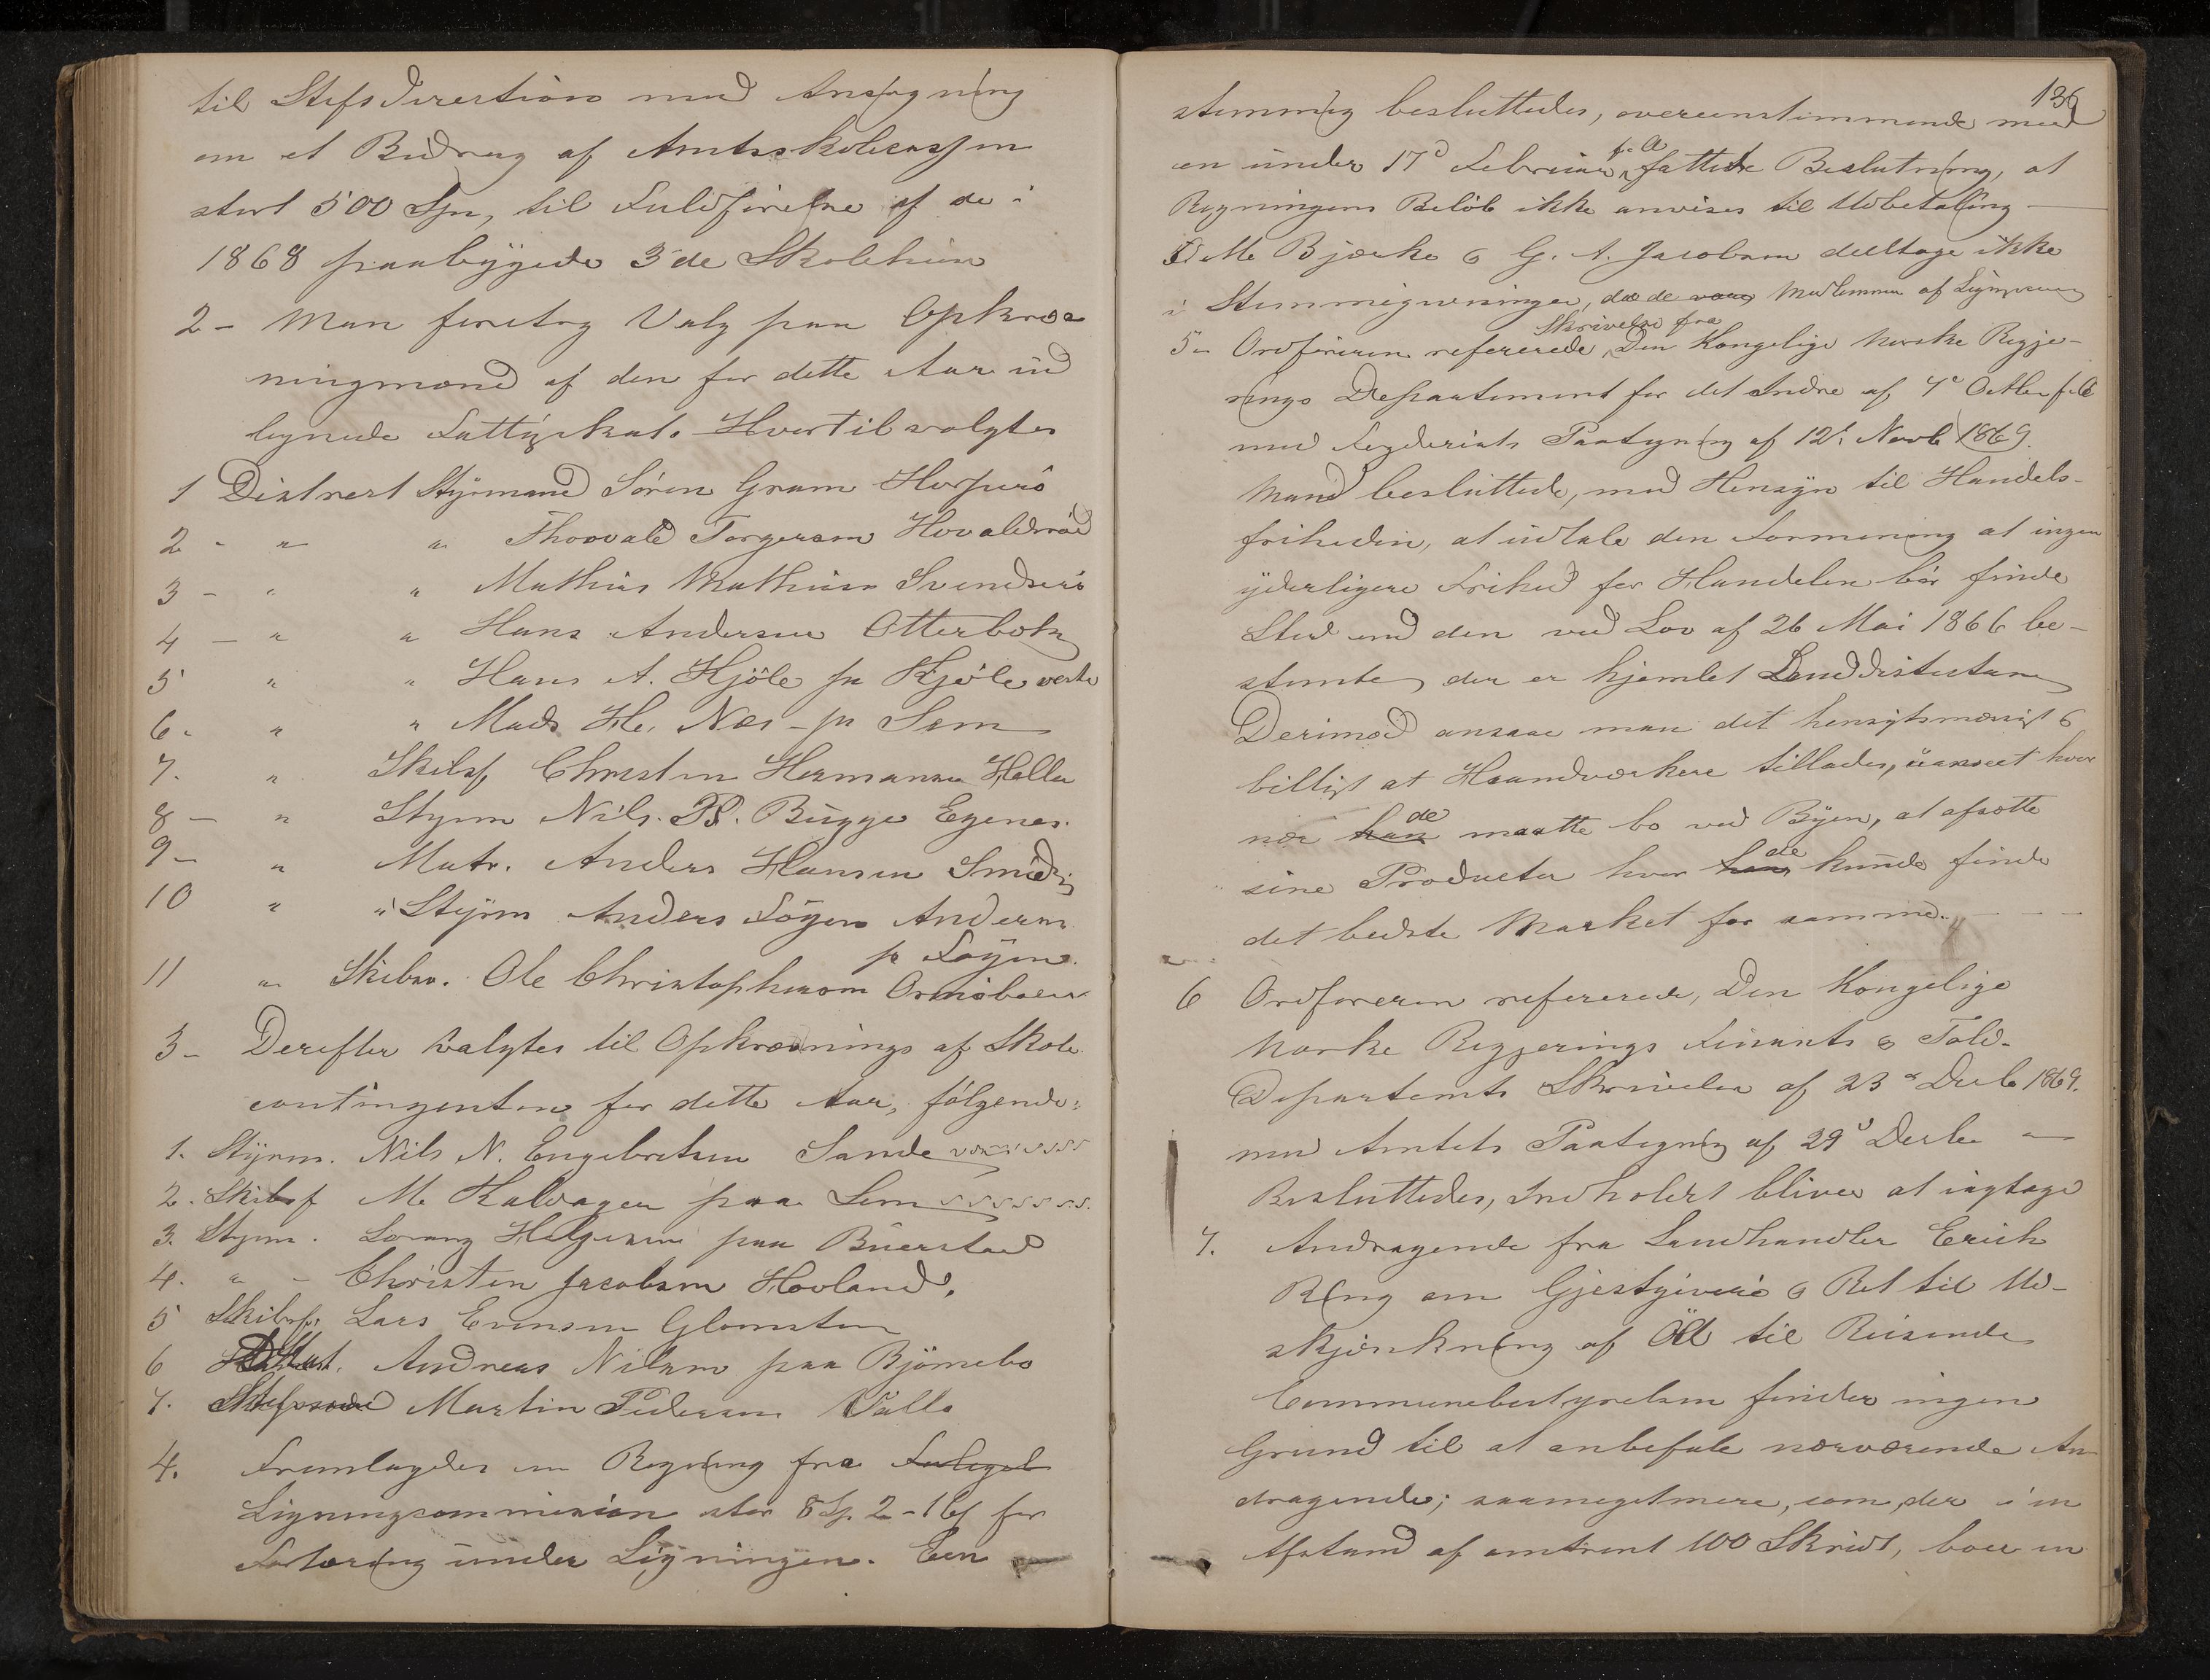 til Stifsdirection med Ansøgning
om et Bidrag af Amtsskolecassen
stort 500 Spd, til Fuldførelse af de i
1868 paabygede 3de Skolehuse
2 - Man foretog Valg paa Opkræv
ningmænd af den for dette Aar ud
lignede Fattigskat. Hvortil valgtes
1 District Styrmand Sören Gram
2 - " " Thorvald Torgersen Hovaldsröd
3 - " " Mathias Mathisen
4 - " " Hans Andersen Otterbæk
5 " " Hans A. Kjöle pa Kjöle vestre
6. " " Mads He. Næs - pa Sem
7. " Skibsf Christen Hermansen Holla
8 - " Styrm Nils. P. Bugge Egenes.
9 - " Matr. Anders Hansen
10 " " Styrm Anders Föyen Andersen
p Föyen.
11 " Skibsr. Ole Christophersen
3 - Derefter valgtes til Opkrævnings af Skole
contingenten for dette Aar, fölgende:
1. Styrm. Nils N. Engebretsen Sande
2. Skibsf M. Kalvagen paa Sem
3. Styrm. Lorang Helgesen paa Buerstad
4. " - Christen Jacobsen Hovland.
5 Skibsf. Lars Evensen Glomsten
6 Matr. Andreas Nilsen paa Björnebo
7. Martin Pedersen Valle
4. Fremlagdes en Regning fra
Ligningscommission stor 8 Sp. 2 - 16 ß for
Fortæring under Ligningen. Een
136
stemmig besluttedes, overeenstimmende med
f. A
en under 17d Februar fattede Beslutning, at
Regningens Belöb ikke anvises til Udbetaling
M Bjerke o G. A. Jacobsen deeltoge ikke
i Stemmegivningen, da de vare Medlemmer af Lign
Skrivelse fra
5 - Ordföreren refererede, Den Kongelige Norske Regje-
rings Departement for det Indre af 7d Octbr f. A
med Fogderiets Paategning af 12t Novb 1869.
Mand besluttede, med Hensyn til Handels-
friheden, at udtale den Formening at ingen
yderligere Frihed for Handelen bör finde
Sted end den ved Lov af 26 Mai 1866 be-
stemte, der er hjemlet Landdistricterne
Derimod ansaae man det hensigtsmæsigt o
billigt at Haandværkere tillades, uanseet hvor
de
nær han maatte bo ved Byen, at afsætte
de
sine Producter hvor han kunde finde
det bedste Market for samme.
6 Ordföreren refererede, Den Kongelige
Norske Regjerings Finants o Told-
Departemts Skrivelse af 23d Decb 1869.
med Amtets Paategning af 29d Decbr -
Besluttedes, Indholdet bliver at iagtage
7. Andragende fra Landhandler Erich
Ring om Gjestgiveri o Ret til Ud-
skjænkning af Öl til Reisende
Communebestyrelsen finder ingen
Grund til at anbefale nærværende An
dragende; saameget mere, som, der i en
Afstand af omtrent 100 Skridt, boer en